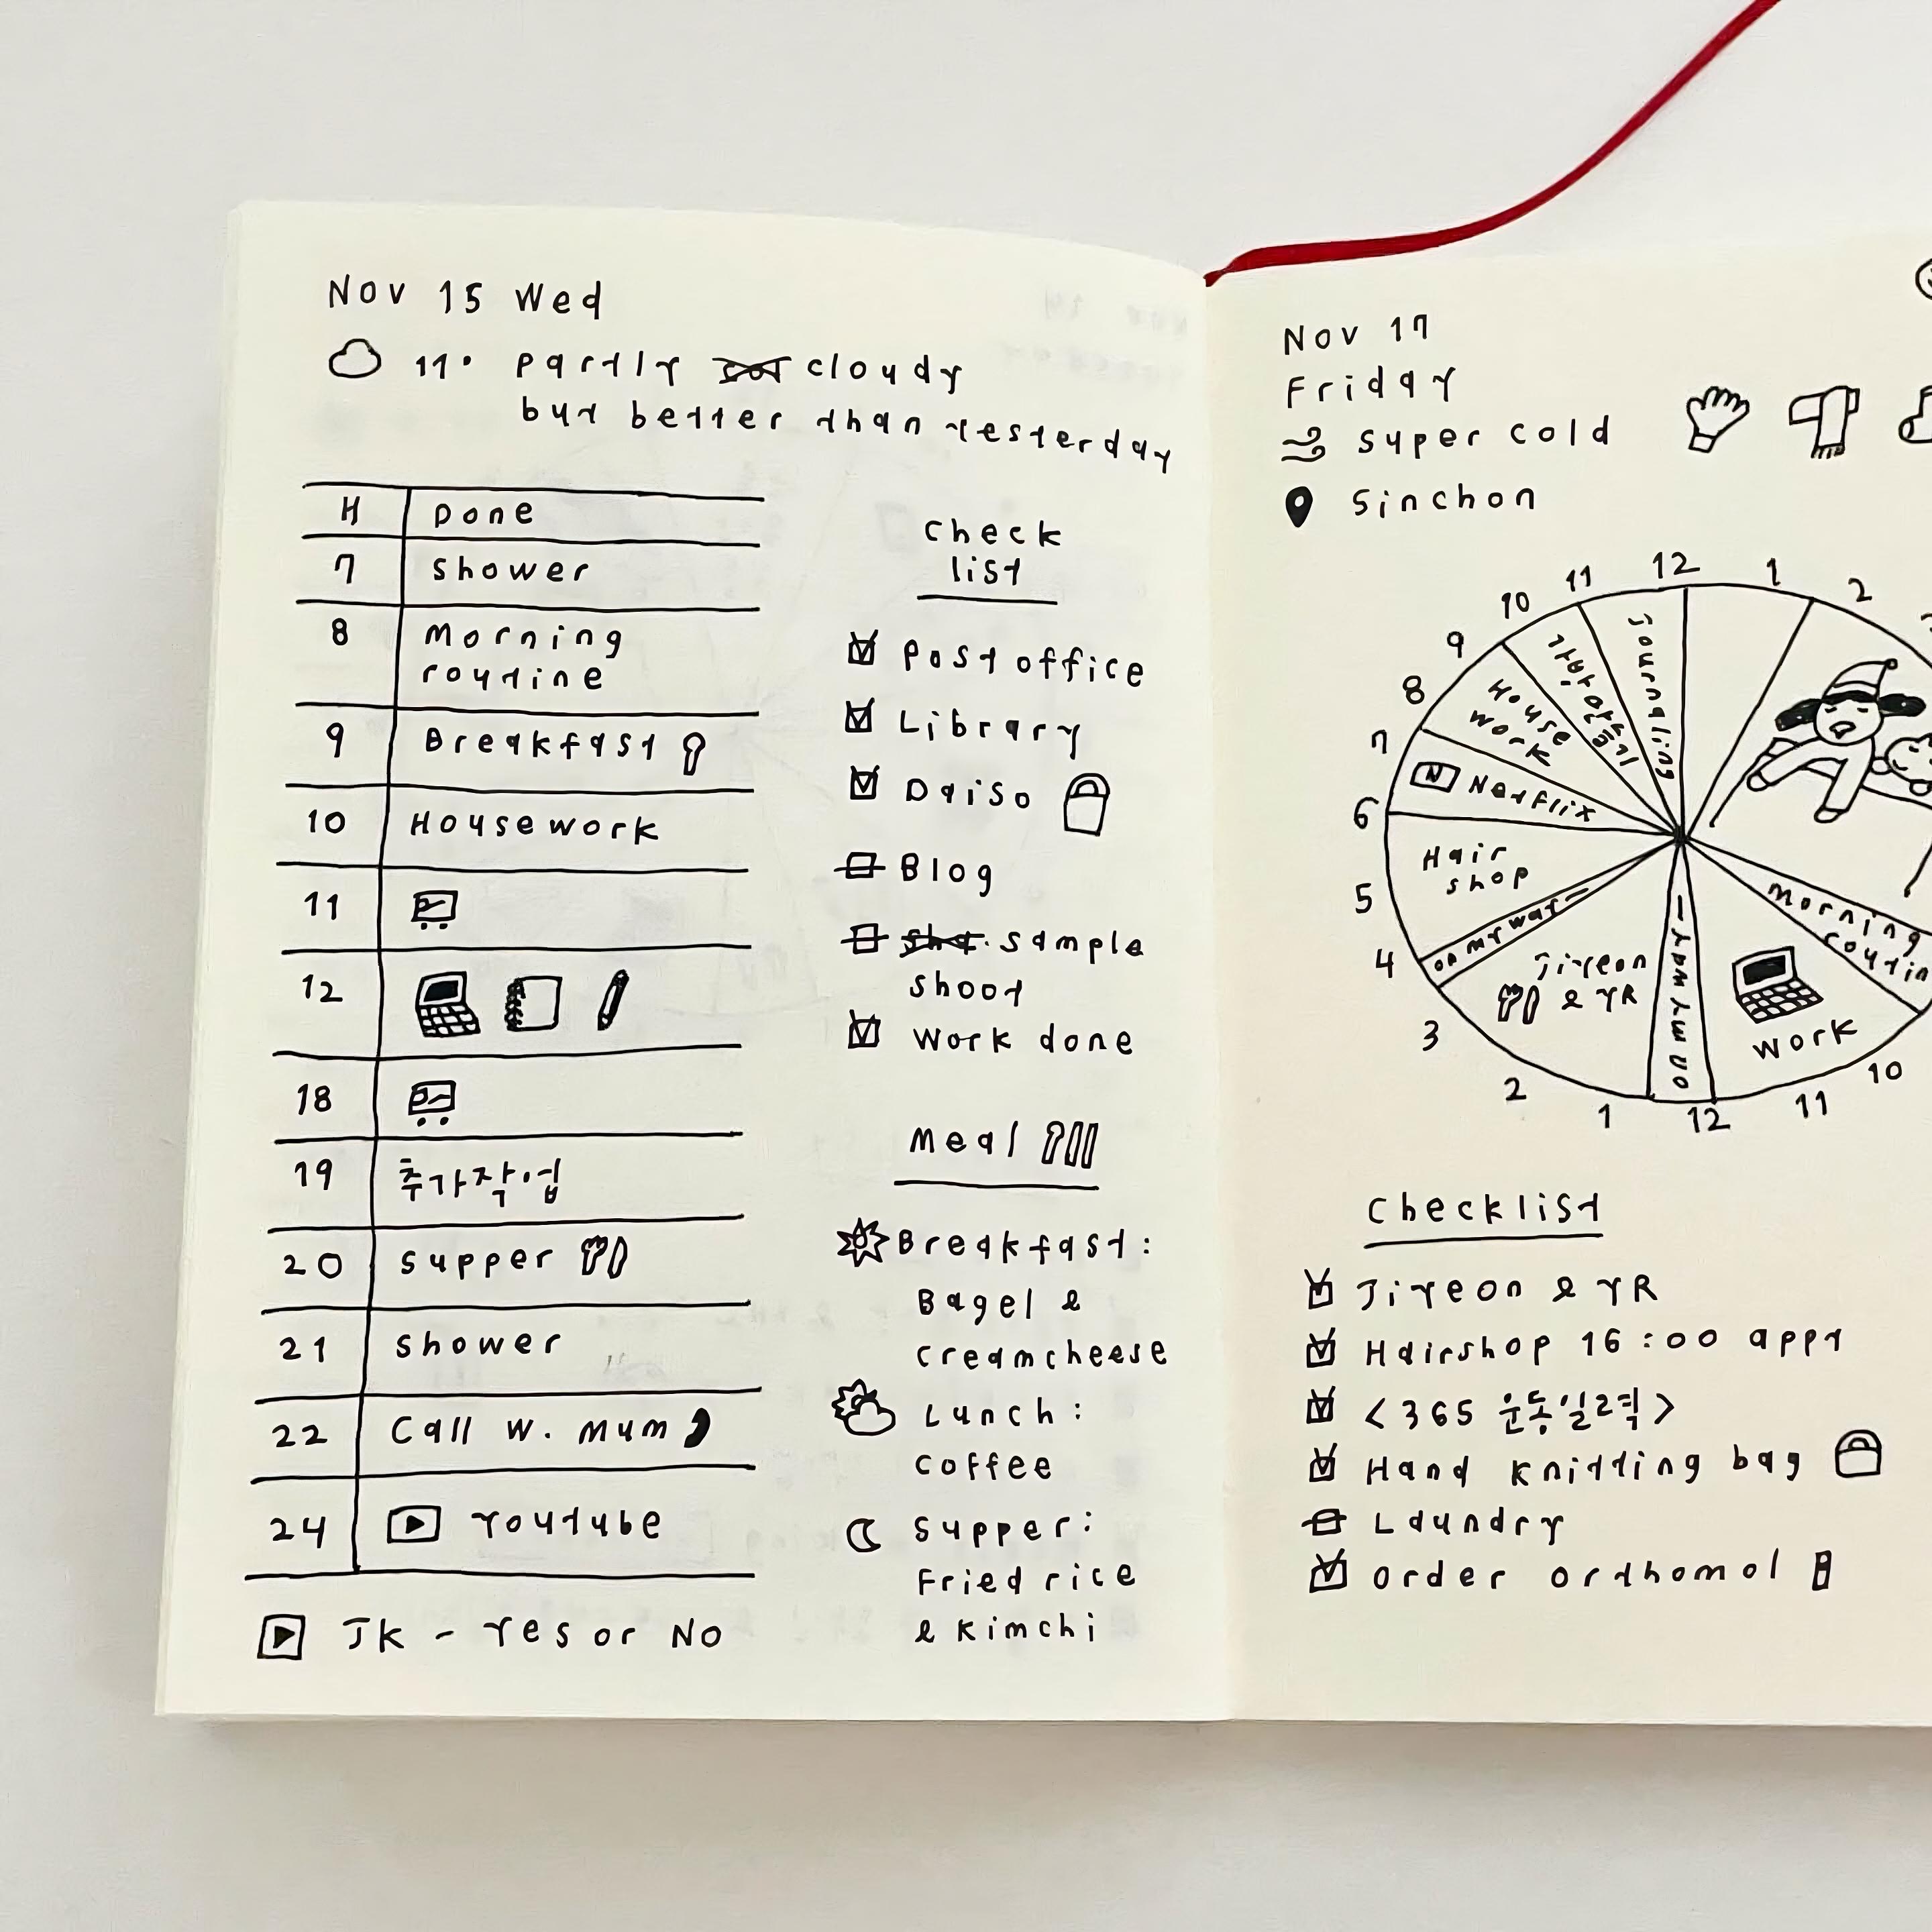 Nov 15 Wed
11° partly cloudy
but better than yesterday
H Done
7 shower
8 Morning
routine
9 Breakfast
10 Housework
11
12
18
19 추가작업
20 supper
21 shower
22 Call w. mum
24 Youtube
JK - Yes or No
Check
list
Post office
Library
Daiso
Blog
sample
shoot
Work done
Meal
Breakfast:
Bagel &
creamcheese
Lunch:
coffee
Supper:
Fried rice
& kimchi
Nov 17
Friday
super cold
Sinchon
12
1
2
10
11
12
1
2
3
4
5
6
7
8
9
10
11
Journaling
House
work
N Netflix
Hair
shop
on my way
Jiyeon
& YR
on my way
work
Morning
routin
Checklist
Jiyeon & YR
Hairshop 16:00 appt
<365 운동일력>
Hand knitting bag
Laundry
order orthomol